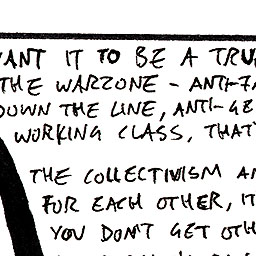 WANT IT TO BE A TRU
THE WARZONE - ANTI-FA
DOWN THE LINE, ANTI-GE
WORKING CLASS, THAT'
THE COLLECTIVISM AN
FOR EACH OTHER, IT
YOU DON'T GET OTH